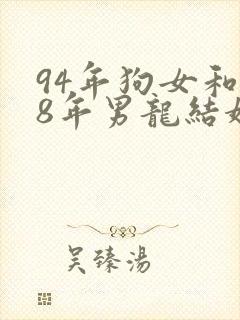 94年狗女和
8年男龍結婚
吴臻湯